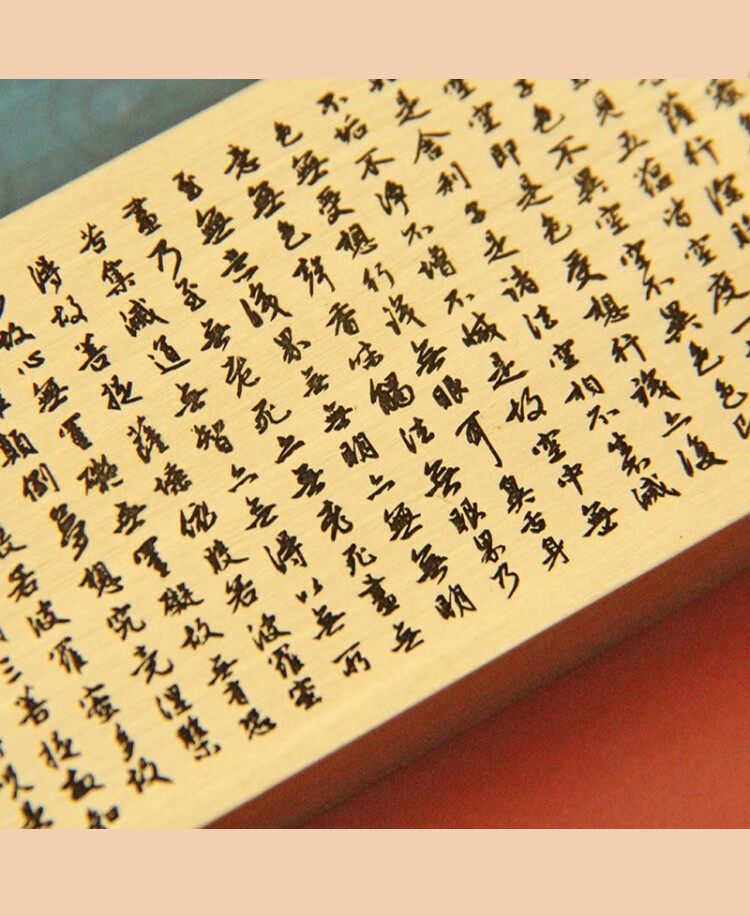 薩行深
見五蘊皆空度一
子色不異空空不異色色
空空即是色受想行識亦復
是舍利子是諸法空相不生滅
不垢不淨不增不減是故空中無
色無受想行識無眼耳鼻舌身
意無色聲香味觸法無眼界乃
至無意識界無無明亦無無明
盡乃至無老死亦無老死盡無
苦集滅道無智亦無得以無所
得故菩提薩埵依般若波羅蜜
故心無罣礙無罣礙故無有恐
顛倒夢想究竟涅槃
若波羅蜜多故
三菩提故知
呪是